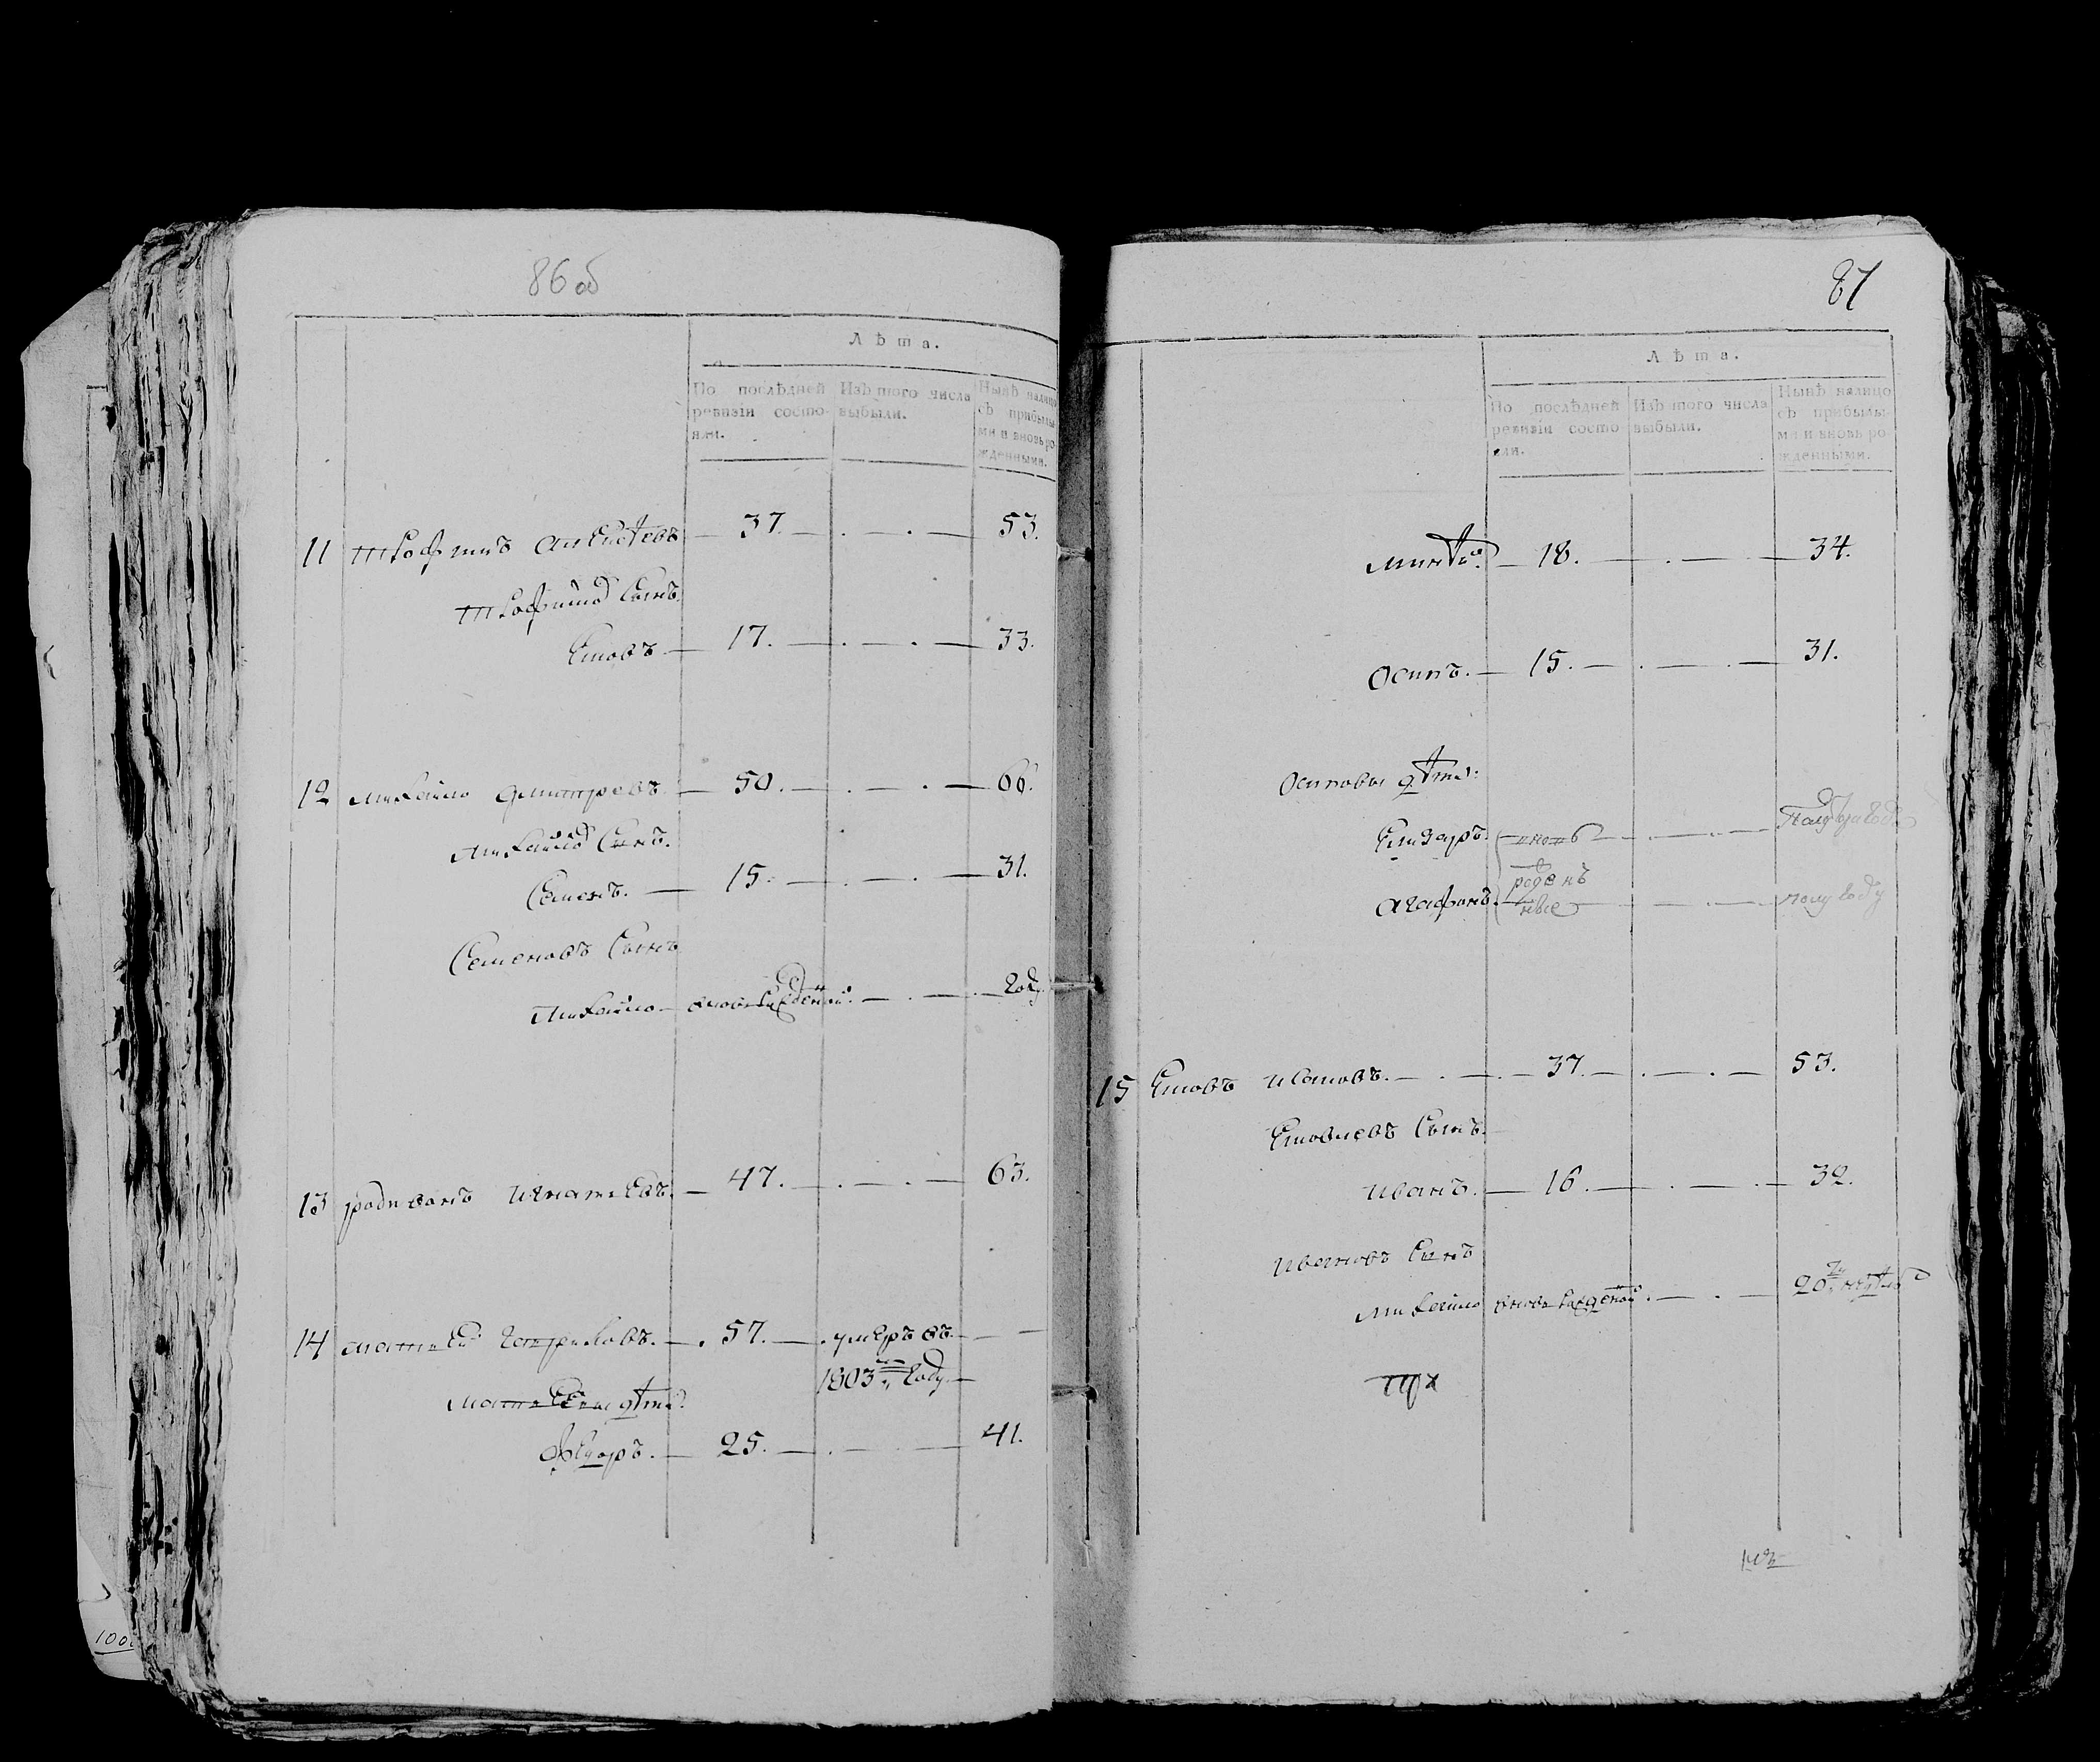 86 об
Лѣта.
По послѣдней ревизіи состояли.
Изъ того числа выбыли.
Нынѣ налицо съ прибылыми и вновь рожденными.
11 Трофимъ — 37. — . — . — 53.
Трофимовъ Сынъ
— 17. — . — . — 33.
12 михайло дмитревъ — 50. — . — . — 66.
михайловъ Сынъ.
Семенъ. — 15. — . — . — 31.
Семеновъ Сынъ
михайло — вновьрожденной. — . — . году
13 родивонъ игнатьевъ. — 47. — . — . — 63.
14 матвей гавриловъ. — . 57. — . умеръ въ — —
1803м году. —
матвеевы дѣти:
федоръ. — 25. — . — . — 41.
87
Лѣта.
По послѣдней ревизіи состояли.
Изъ того числа выбыли.
Нынѣ налицо съ прибылыми и вновь рожденными.
— 18. — . — . — 34.
Осипъ. — 15. — . — . — 31.
Осиповы дѣти:
Елизаръ. вновь — . — .
агафонъ. рожденные — . — . полугоду
15 Ековъ ивановъ. — . — . — 37. — . — . — 53.
Ековлевъ Сынъ. —
иванъ. — 16. — . — . — 32.
ивановъ Сынъ
михайло вновьрожденой. — . — 20ти недѣль